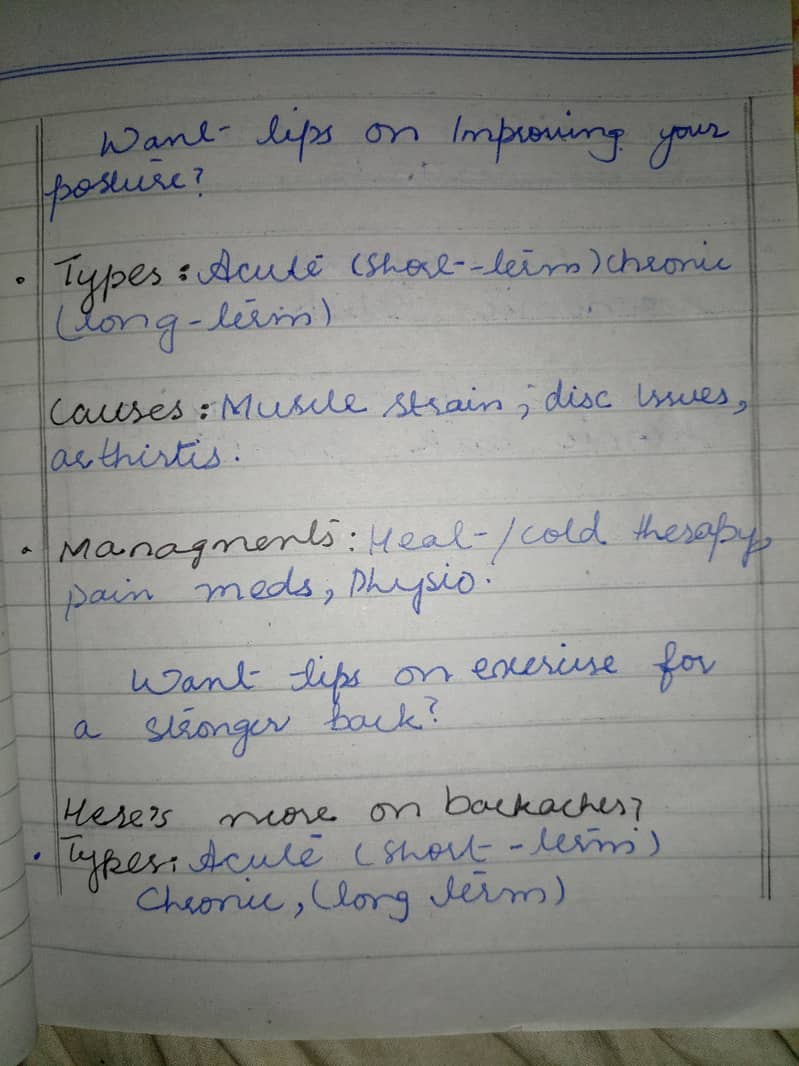 Want tips on Improving your
posture?
• Types: Acute (short-term) chronic
(long-term)
Causes: Muscle strain, disc Issues,
arthirtis.
• Managments: Heat/cold therapy,
pain meds, Physio.
Want tips on exercise for
a stronger back?
Here's more on backaches?
• Types: Acute (short-term)
Chronic, (long term)